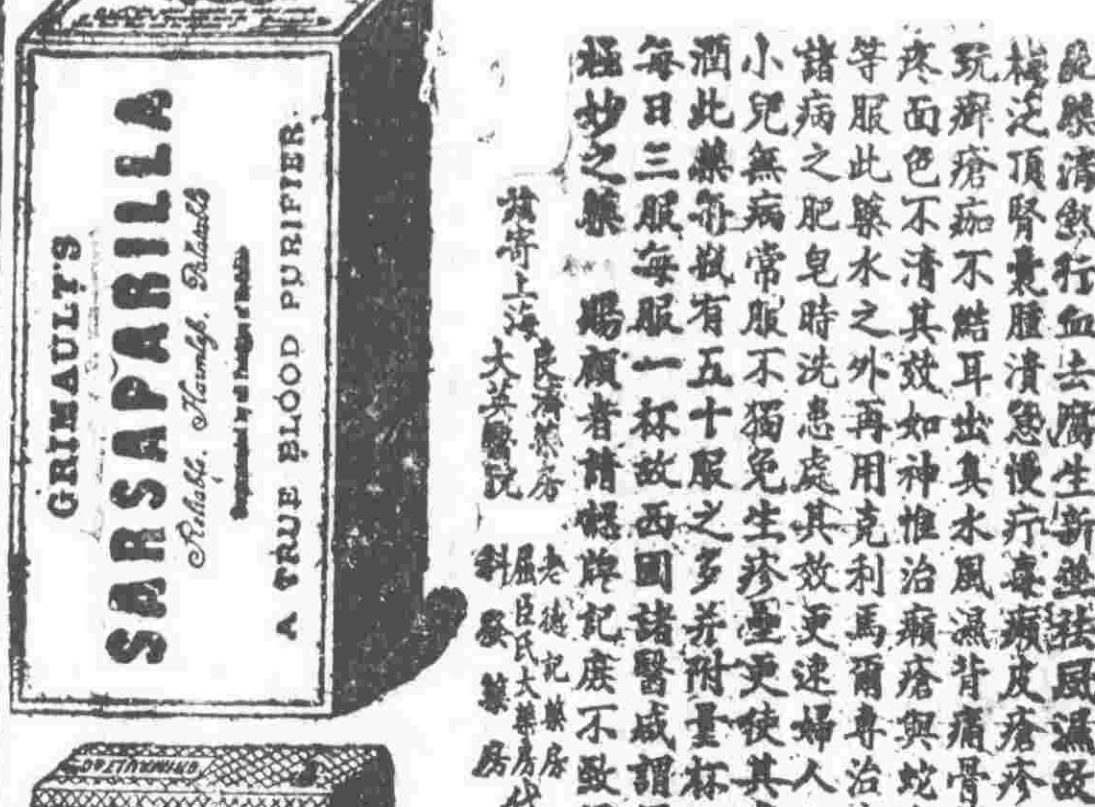 GRIMAULT'S
SARSAPARILLA
Reliable, Harmless, Palatable
A TRUE BLOOD PURIFIER.
GRIMAULT & CO
清熱行血去腐生新並祛風濕故
泛頂腎囊腫潰急慢疔毒癩皮瘡疹
玩癬瘡痂不結耳出臭水風濕背痛骨
疼面色不清其效如神惟治癩瘡與蛇
等服此藥水之外再用克利馬爾專治
諸病之肥皂時洗患處其效更速婦人
小兒無病常服不獨免生疹更使其
酒此藥每瓶有五十服之多并附量杯
每日三服每服一杯故西國諸醫咸謂
極妙之藥 賜顧者請認牌記庶不致
寄上海
良濟藥房
大英醫院
老德記藥房
屈臣氏大藥房
科發藥房